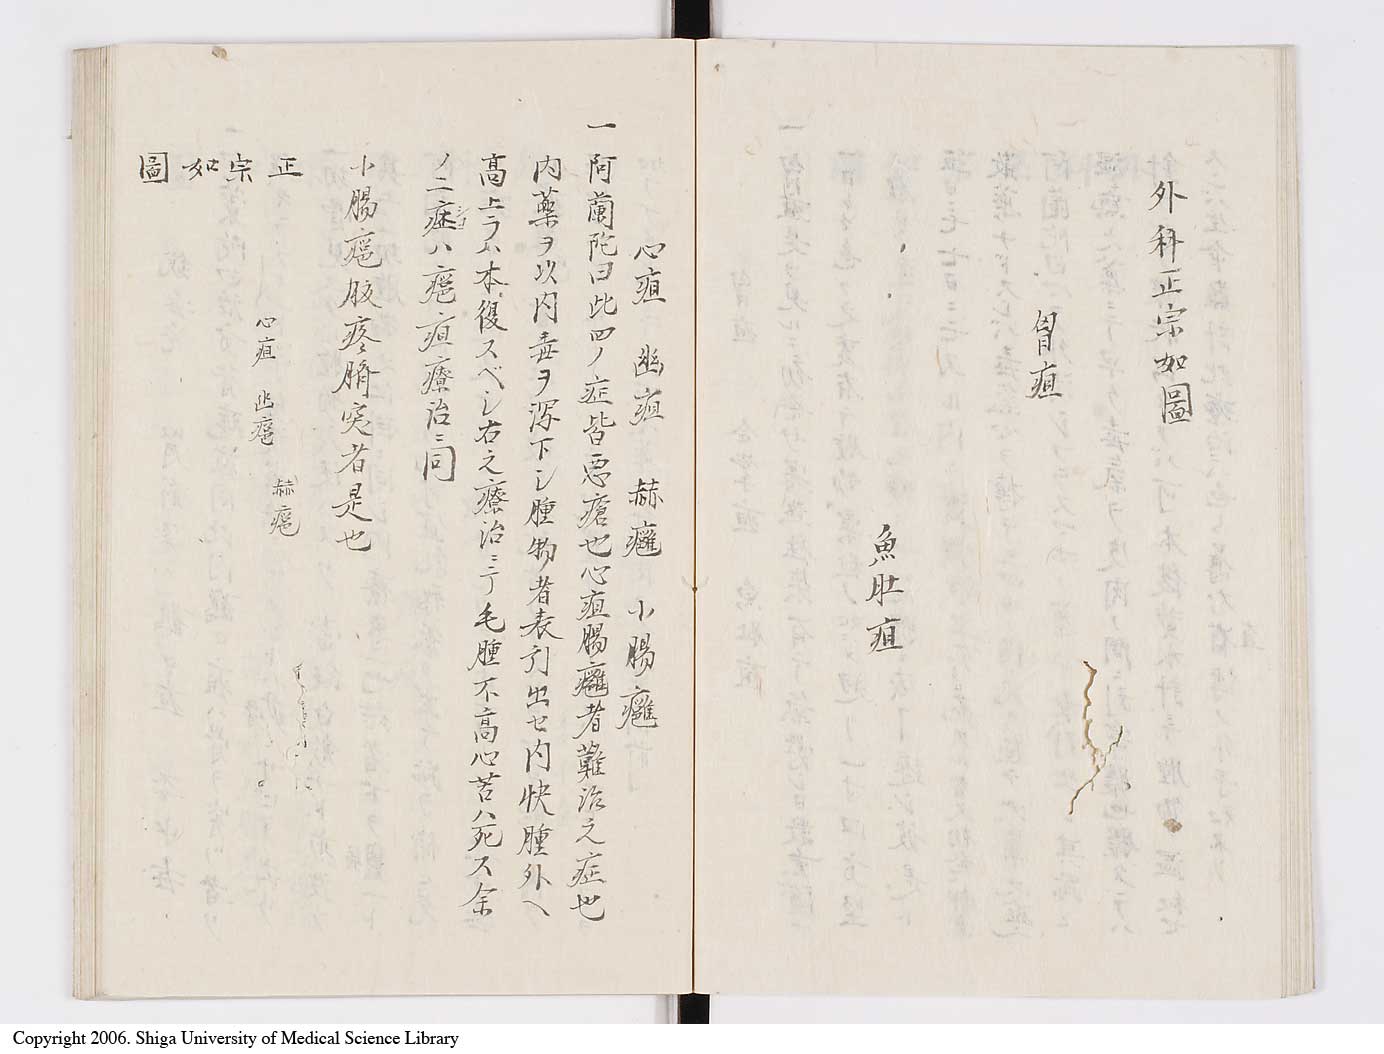 外科正宗如圖
胃疽
魚肚疽
心疽　幽疽　赫癰　小腸癰
一阿蘭陀曰此四ノ症皆悪瘡也心疽腸癰者難治之症也
内藥ヲ以内毒ヲ瀉下シ腫物者表引出セ内快腫外ヘ
高上ラハ本復スベシ右之療治ニテ毛腫不高心苦ハ死ス余
ノ二症ハ癰疽療治ニ同
小腸癰肢疼臍突者是也
心疽
幽癰
赫癰
正宗如圖
Copyright 2006. Shiga University of Medical Science Library